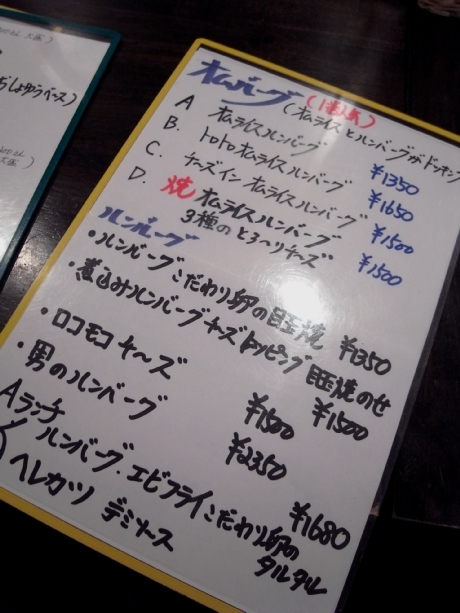 オムバーグ (1番人気)
(オムライスとハンバーグがドッキング
A オムライスハンバーグ ¥1350
B. トロトロオムライスハンバーグ ¥1650
C. チーズイン オムライスハンバーグ ¥1500
D. 焼 オムライスハンバーグ ¥1500
3種のとろ〜りチーズ
ハンバーグ
・ハンバーグ こだわり卵の目玉焼 ¥1350
・煮込みハンバーグ チーズトッピング 目玉焼のせ ¥1500
・ロコモコ チーズ ¥1500
・男のハンバーグ ¥2350
Aランチ ¥1680
ハンバーグ・エビフライこだわり卵のタルタル
ヘレカツ デミソース
しょゆうベース)